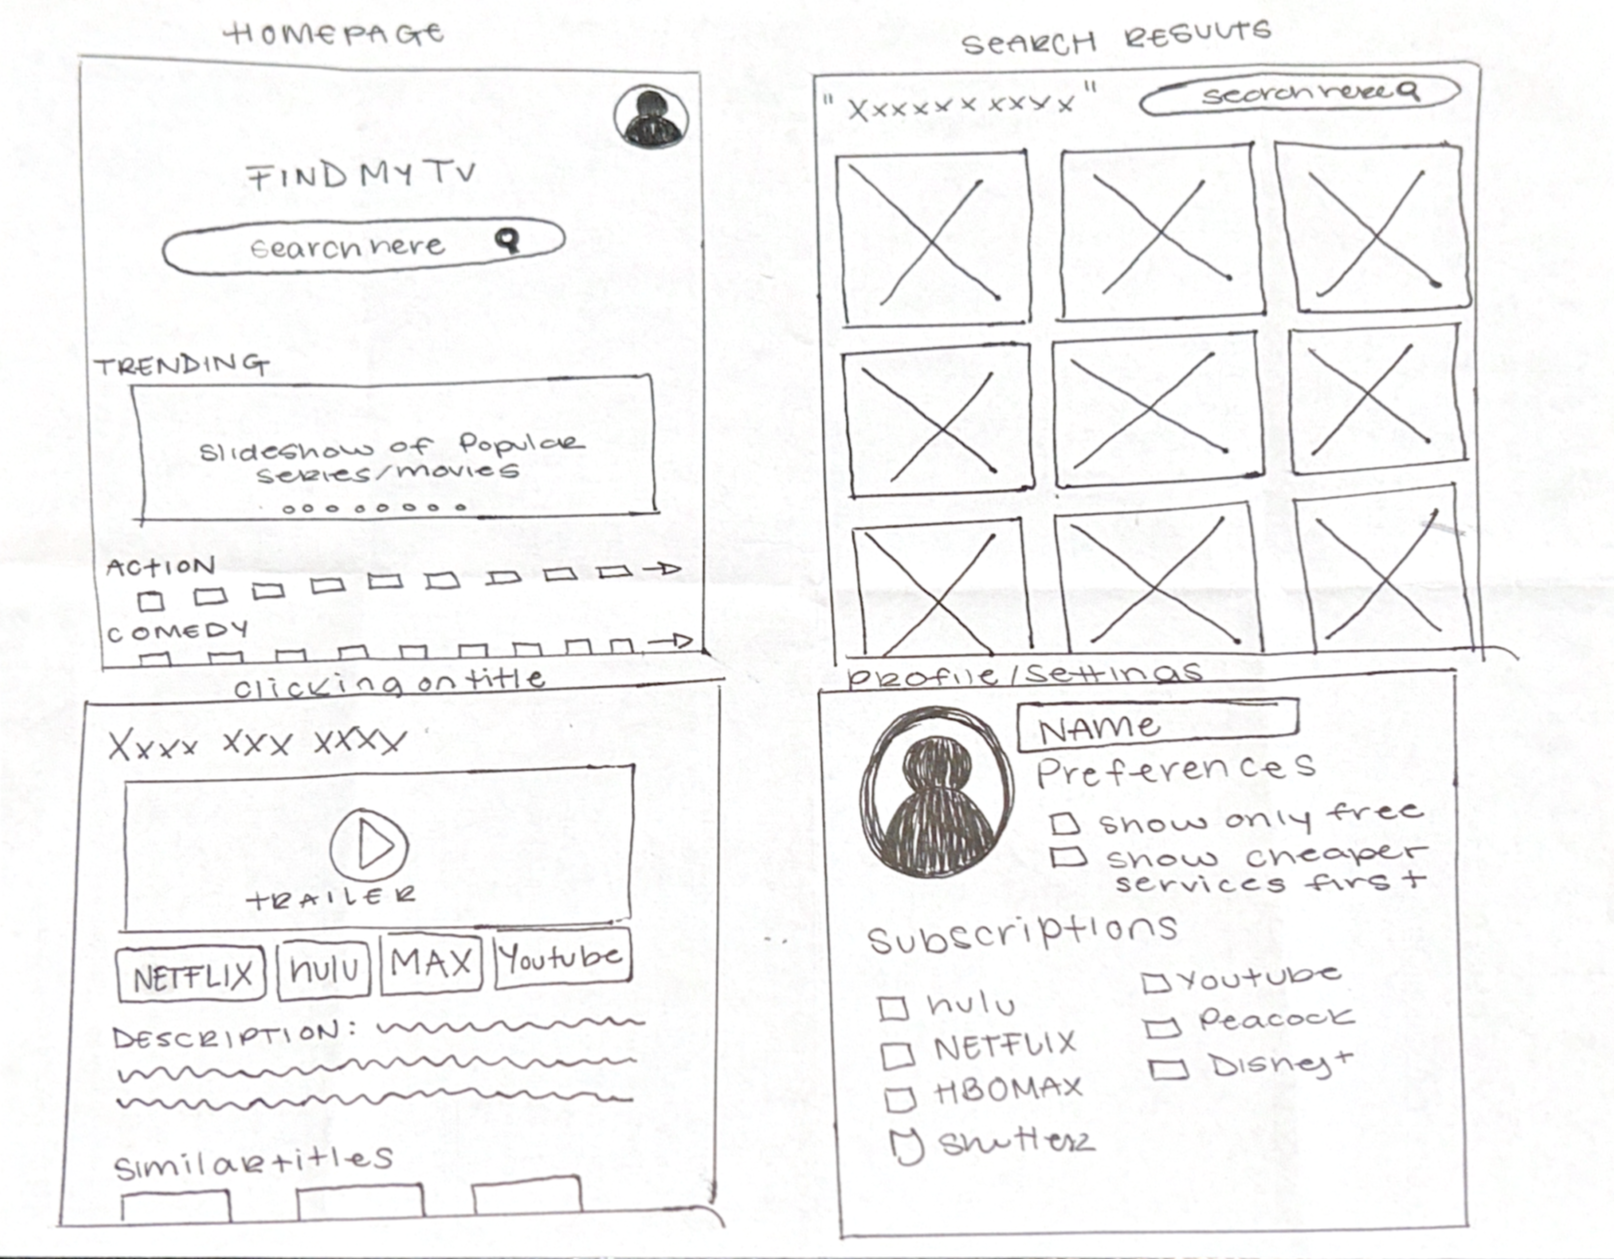 HOMEPAGE
FIND MY TV
search here
TRENDING
Slideshow of Popular
series/movies
ACTION
COMEDY
SEARCH RESULTS
"Xxxxxx xxxx"
search here
clicking on title
Xxxx xxx xxxx
TRAILER
NETFLIX hulu MAX Youtube
DESCRIPTION:
Similar titles
Profile/Settings
NAME
Preferences
show only free
show cheaper
services first
Subscriptions
hulu
NETFLIX
HBOMAX
Shutterz
Youtube
Peacock
Disney+